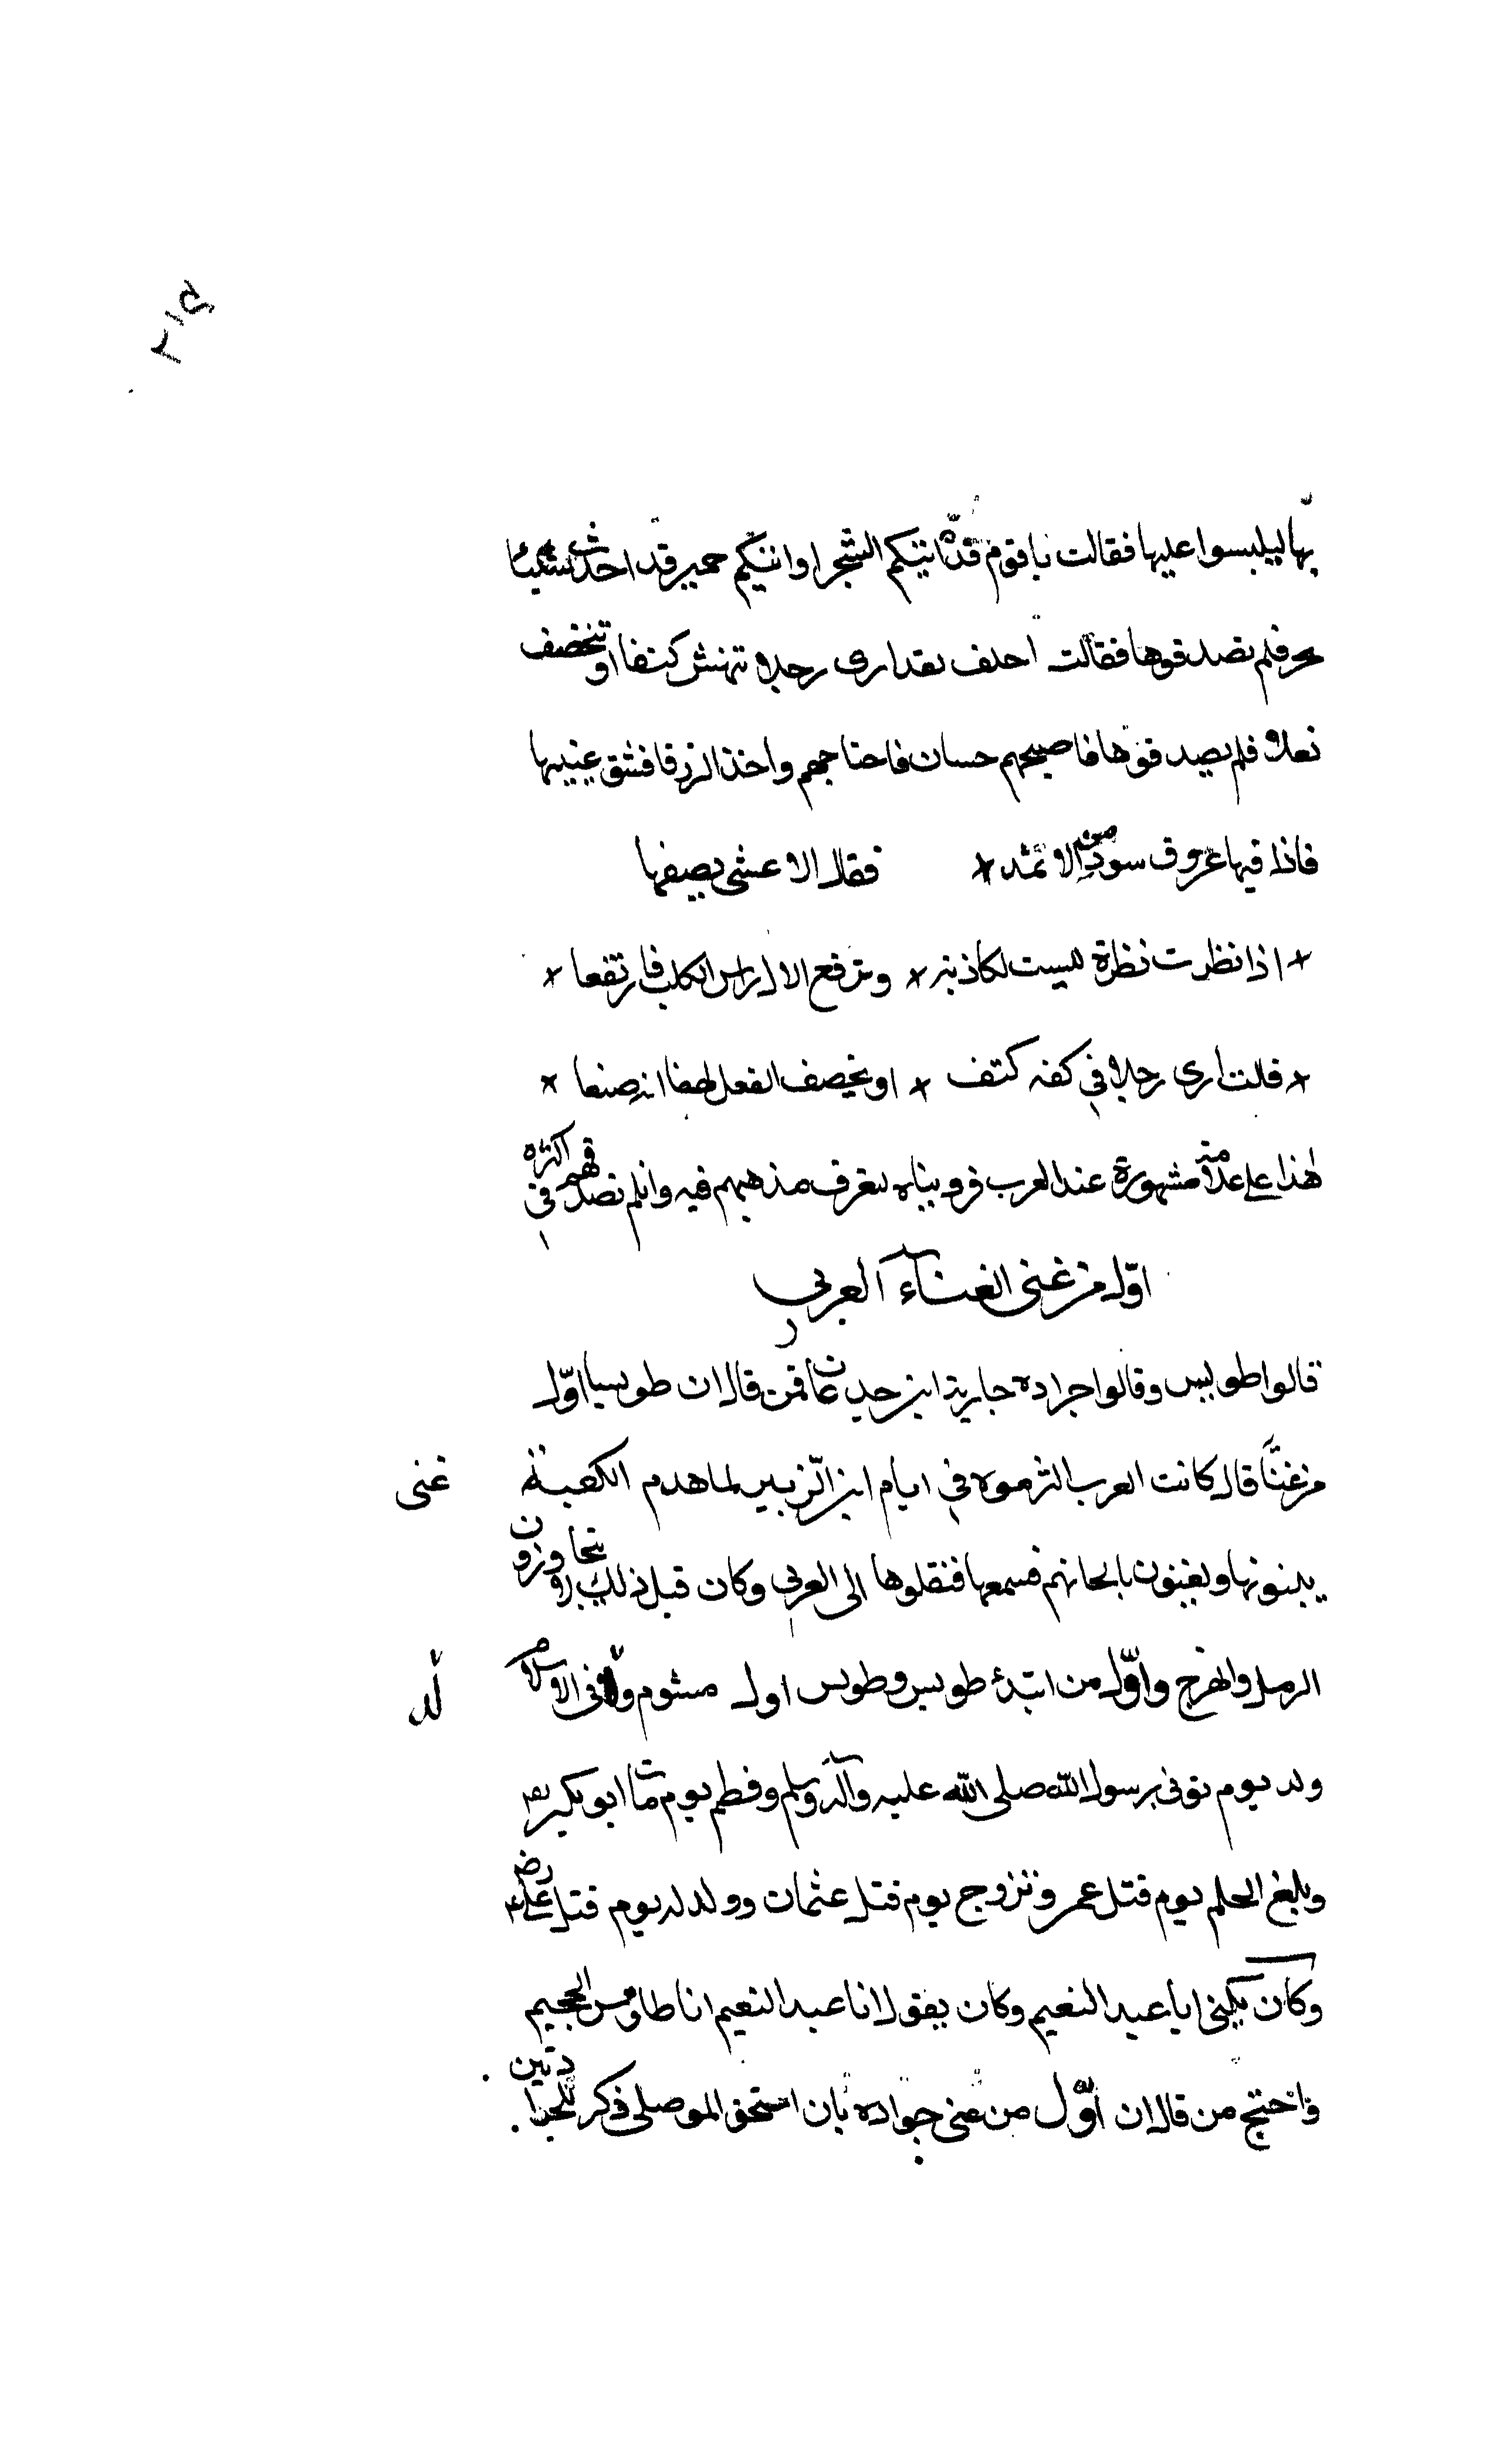 بها ليلبسوا عليها فقالت يا قوم قد اتيتكم الشجر او اتتكم حمير قد احذت شيئا
محر فلم تصدقوها فقالت احلف لقد ارى رجلا تنهش كتفا او تخصف
نعلا فلم يصدقوها فاصبحهم حسان فاحتاجهم واخذ الزرقا فشق عينيها
فاذا فيها عروق سود من الاثمد * فقال الاعشى يصفها
* اذا نظرت نظرة ليست لكاذبة * و ترفع الال راس الكلب فارتفعا *
* قلت ارى رجلا في كفه كتف * او يخصف النعل لهفا انه صنعا *
لهذا على علامة مشهورة عند العرب فرويناه لنعرف مذهبهم فيه وان لم نصدقهم في اكثره
اوّل من غنى الغناء العربي
قالوا طويس وقالوا جراده جارية ابن جدعان فمن قال ان طويسا اوّل
من غنّا قال كانت العرب في ايام ابن الزبير لما هدم الكعبة غنى
يبنونها ويغنون بالحانهم فسمعها فنقلوها الى العربي وكان قبل ذلك يتجاوزون
الرمل والهزج واوّل من ابتدئ طويس وطويس اول مشوم ولد في الاسلام
ولد يوم توفى رسول الله صلى الله عليه وآله وسلم وفطم يوم مات ابو بكر
وبلغ الحلم يوم قتل عمر وتزوج يوم قتل عثمان وولد له يوم قتل على رض
وكان يكنى ابا عبد النعيم وكان يقول انا عبد النعيم انا طاوس الجحيم
واحتج من قال ان اوّل من غنى جراده بان اسحق الموصلي ذكر للجرادتين